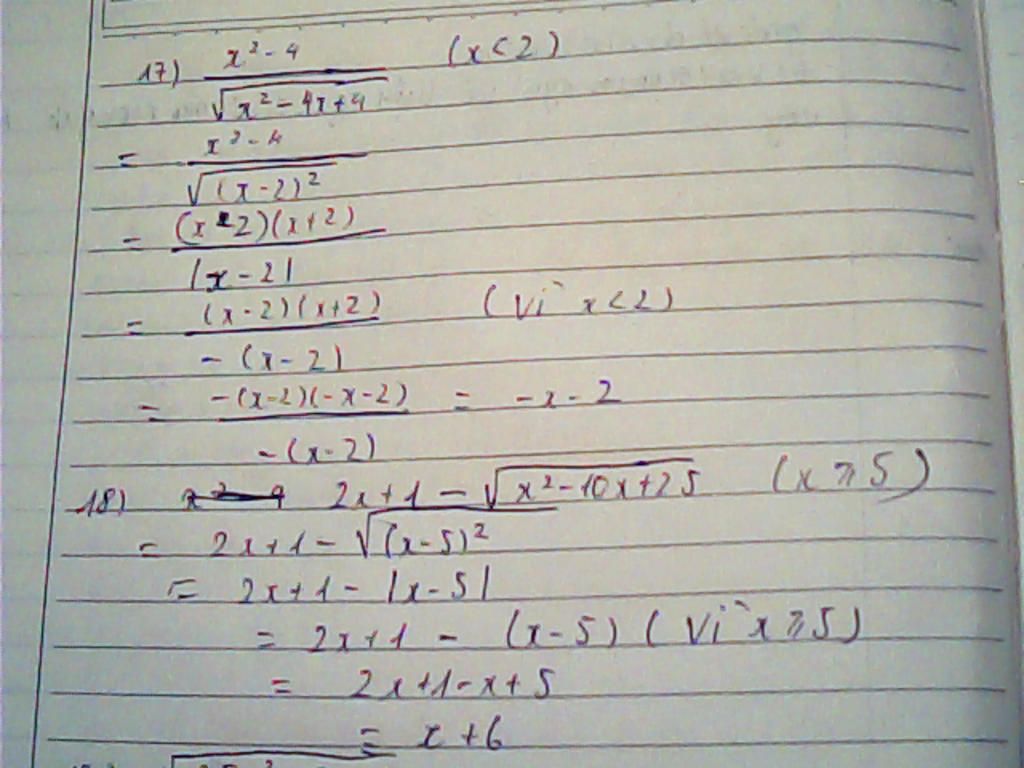 17) \frac{x² - 4}{\sqrt{x² - 4x + 4}} (x < 2)
= \frac{x² - 4}{\sqrt{(x - 2)²}}
= \frac{(x - 2)(x + 2)}{|x - 2|}
= \frac{(x - 2)(x + 2)}{-(x - 2)} (Vì x < 2)
= \frac{-(x - 2)(-x - 2)}{-(x - 2)} = -x - 2
18) 2x + 1 - \sqrt{x² - 10x + 25} (x ⩾ 5)
= 2x + 1 - \sqrt{(x - 5)²}
= 2x + 1 - |x - 5|
= 2x + 1 - (x - 5) (Vì x ⩾ 5)
= 2x + 1 - x + 5
= x + 6